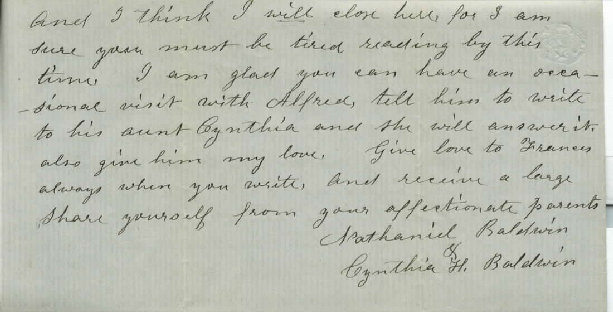 And I think I will close here, for I am
sure you must be tired reading by this
time. I am glad you can have an occa-
-sional visit with Alfred, tell him to write
to his aunt Cynthia and she will answer it.
also give him my love. Give love to Frances
always when you write, and receive a large
share yourself from your affectionate parents
Nathaniel Baldwin
&
Cynthia H. Baldwin